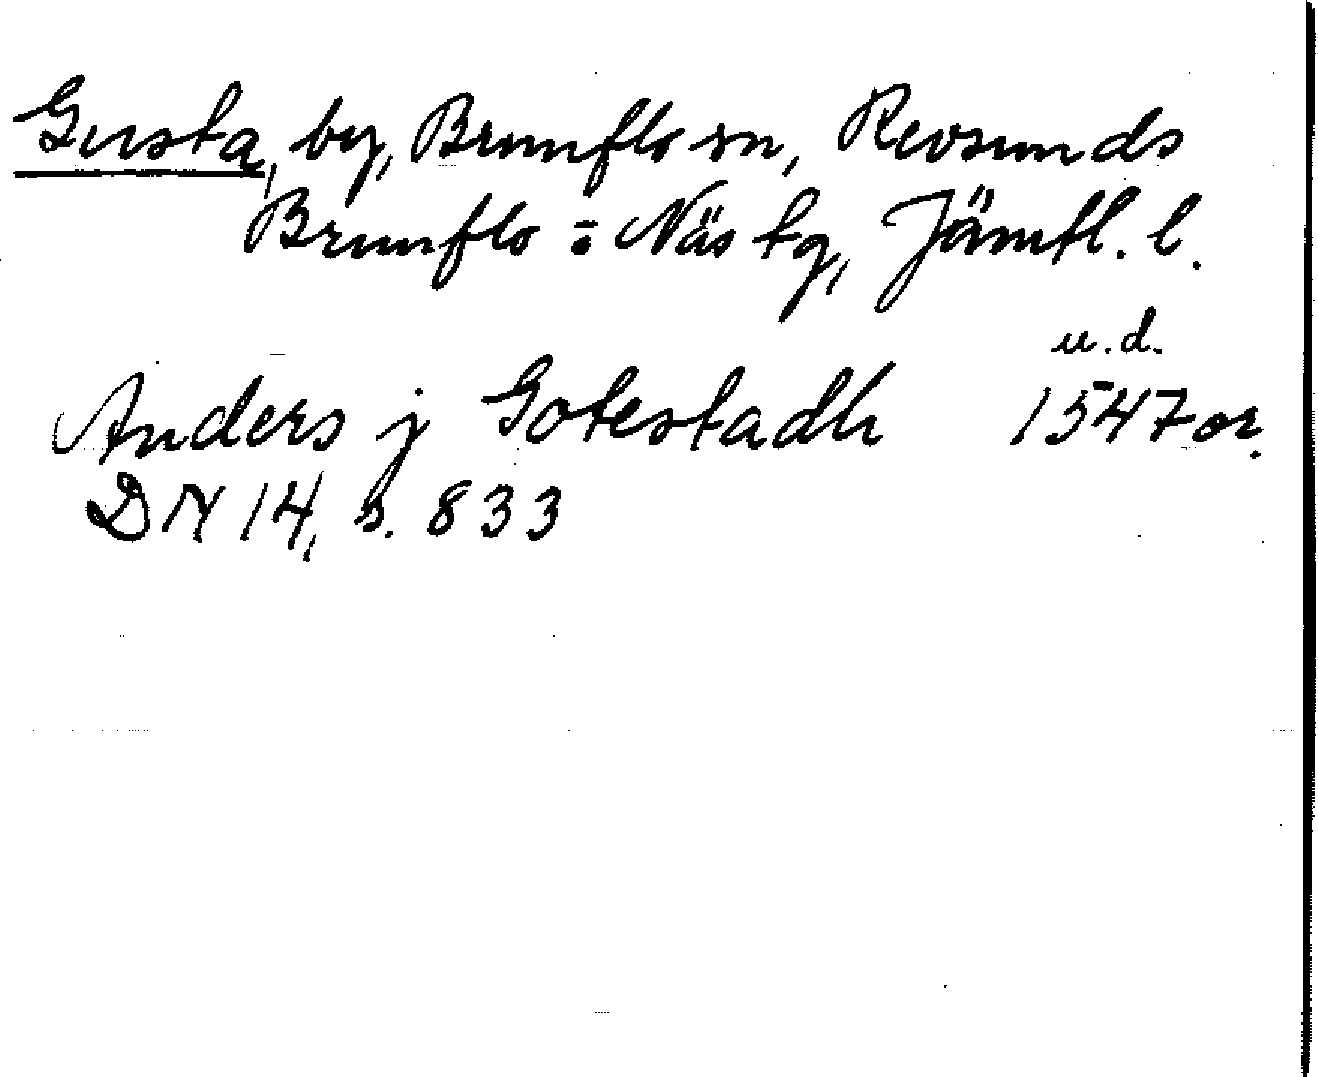 Gusta, by, Brunflo sn, Revsunds
Brunflo o Näs tg, Jämtl. l.
u.d.
Anders j Gotestadh 1547 or.
DN 14, s. 833